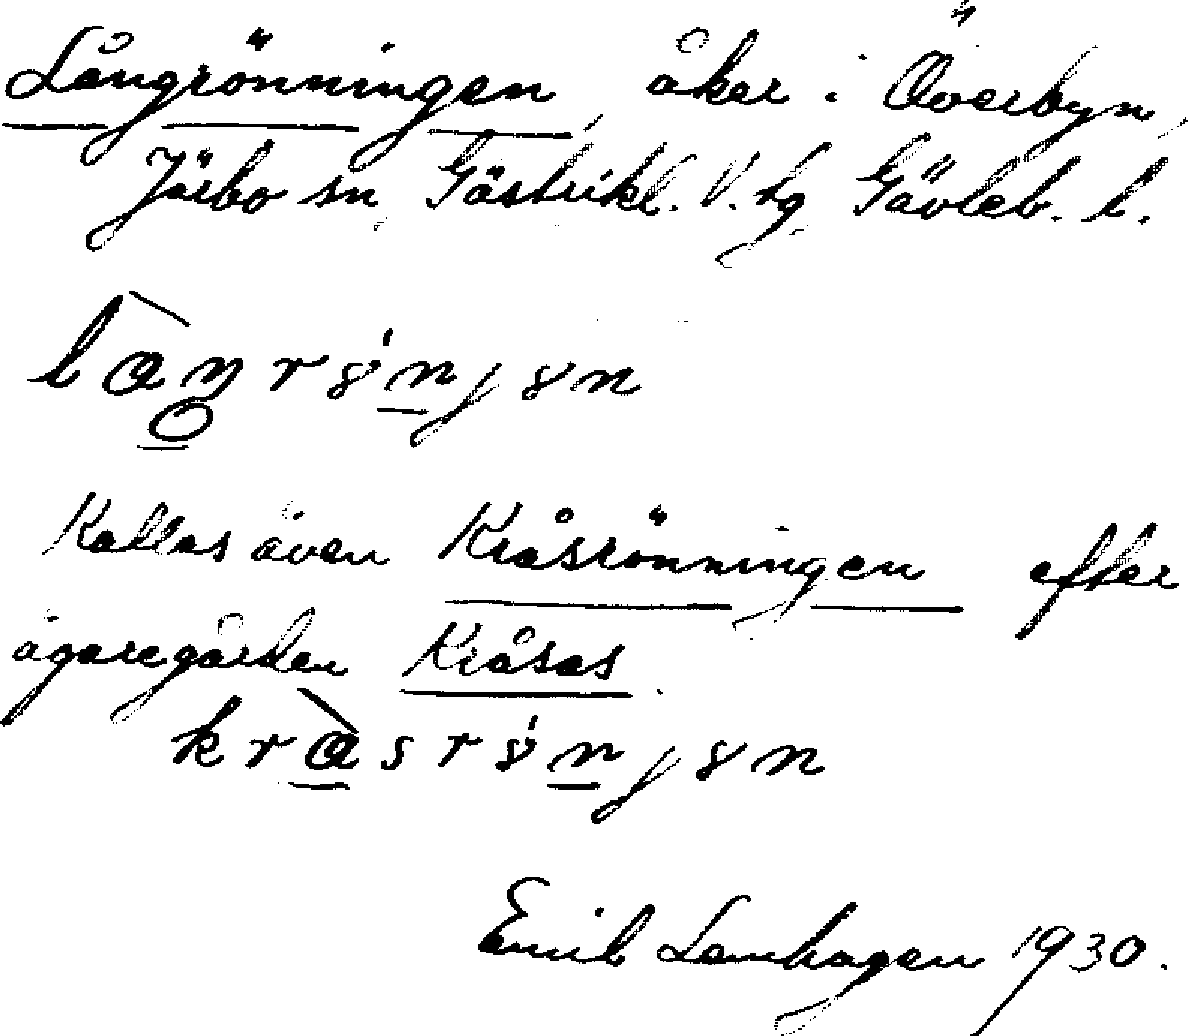 Långrönningen, åker i Överbyn,
Järbo sn, Gästrikl. V. tg Gävleb. l.
Kallas även Kråsrönningen efter
ägaregården Kråsas
Emil Lenhagen 1930.